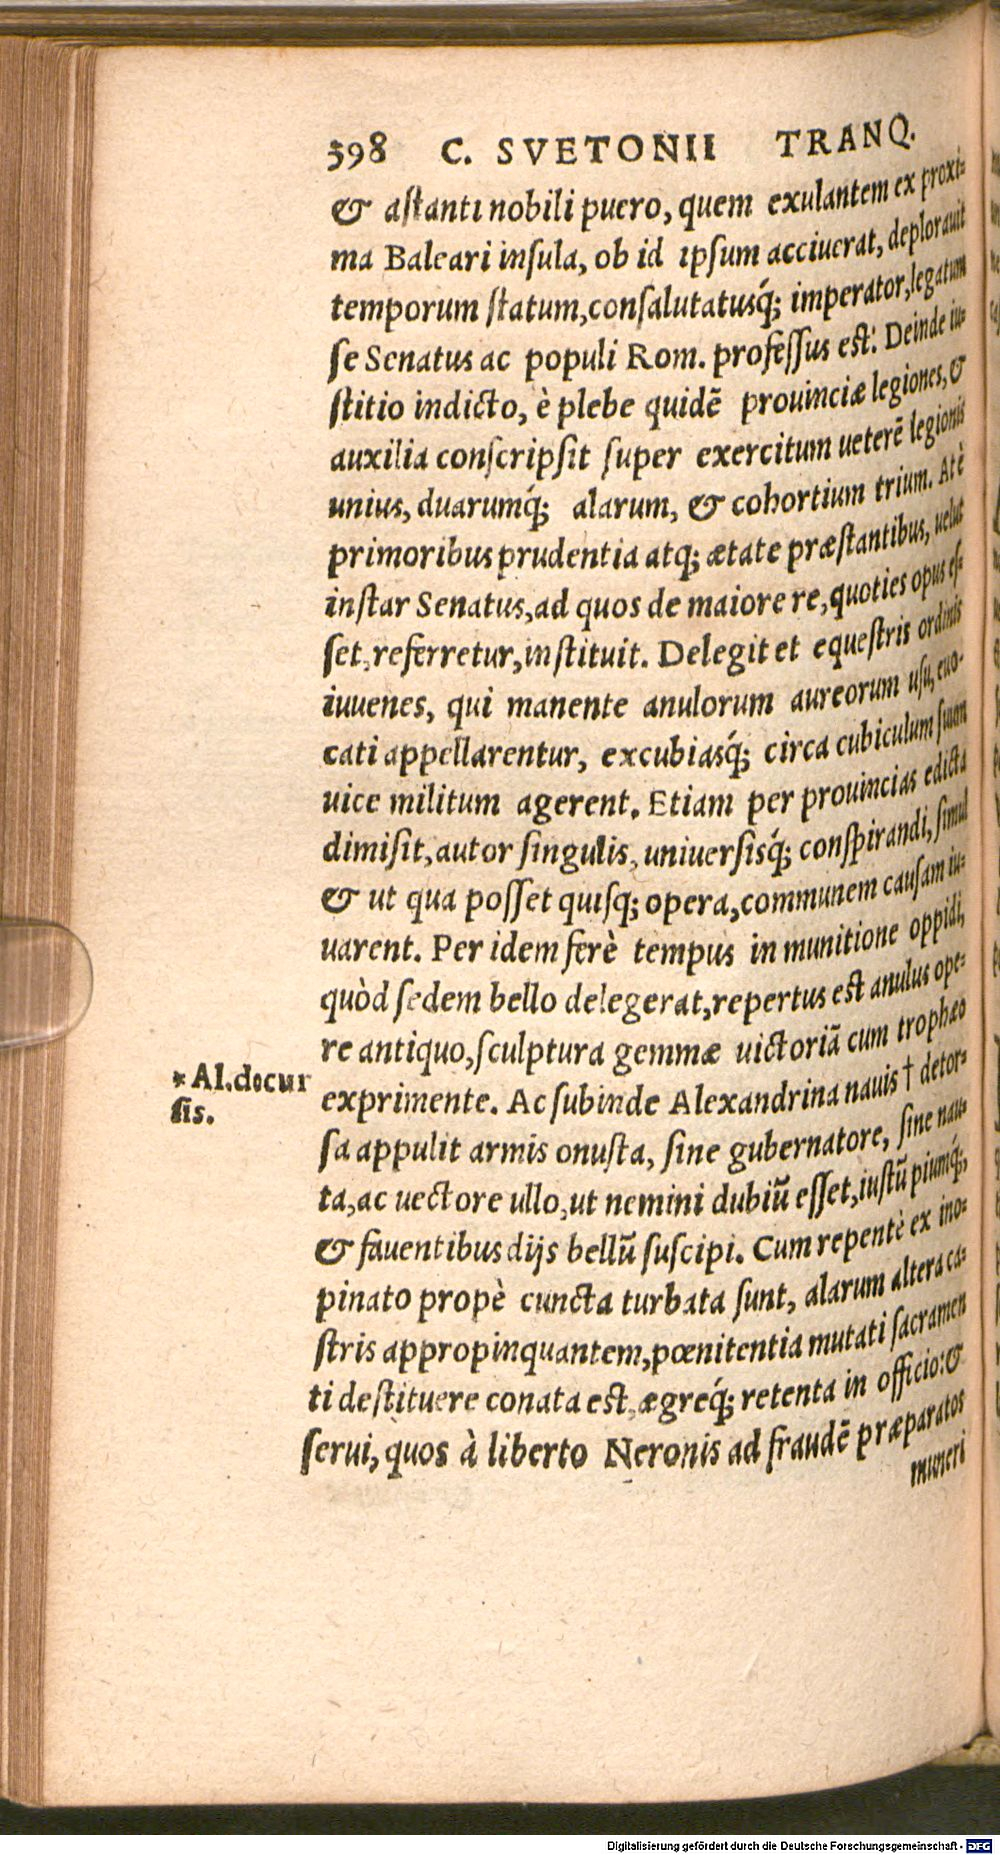 598 C. SVETONII TRANQ.
& astanti nobili puero, quem exulantem ex proxi-
ma Baleari insula, ob id ipsum acciuerat, deplorauit
temporum statum, consalutatusq́; imperator, legatum
se Senatus ac populi Rom. professus est. Deinde iu-
stitio indicto, è plebe quidẽ prouinciæ legiones, &
auxilia conscripsit super exercitum ueterẽ legionis
unius, duarumq́; alarum, & cohortium trium. At è
primoribus prudentia atq; ætate præstantibus, uelut
instar Senatus, ad quos de maiore re, quoties opus es-
set, referretur, instituit. Delegit et equestris ordinis
iuuenes, qui manente anulorum aureorum usu, euo-
cati appellarentur, excubiasq́; circa cubiculum suum
uice militum agerent. Etiam per prouincias edicta
dimisit, autor singulis, uniuersisq́; conspirandi, simul
& ut qua posset quisq; opera, communem causam iu-
uarent. Per idem ferè tempus in munitione oppidi,
quòd sedem bello delegerat, repertus est anulus ope-
re antiquo, sculptura gemmæ uictoriã cum trophæo
* Al. decur
sis.
exprimente. Ac subinde Alexandrina nauis † detor-
sa appulit armis onusta, sine gubernatore, sine nau-
ta, ac uectore ullo, ut nemini dubiũ esset, iustũ piumq́;,
& fauentibus dijs bellũ suscipi. Cum repentè ex ino-
pinato propè cuncta turbata sunt, alarum altera ca-
stris appropinquantem, pœnitentia mutati sacramen
ti destituere conata est, ægreq́; retenta in officio: &
serui, quos à liberto Neronis ad fraudẽ præparatos
muneri
Digitalisierung gefördert durch die Deutsche Forschungsgemeinschaft - DFG